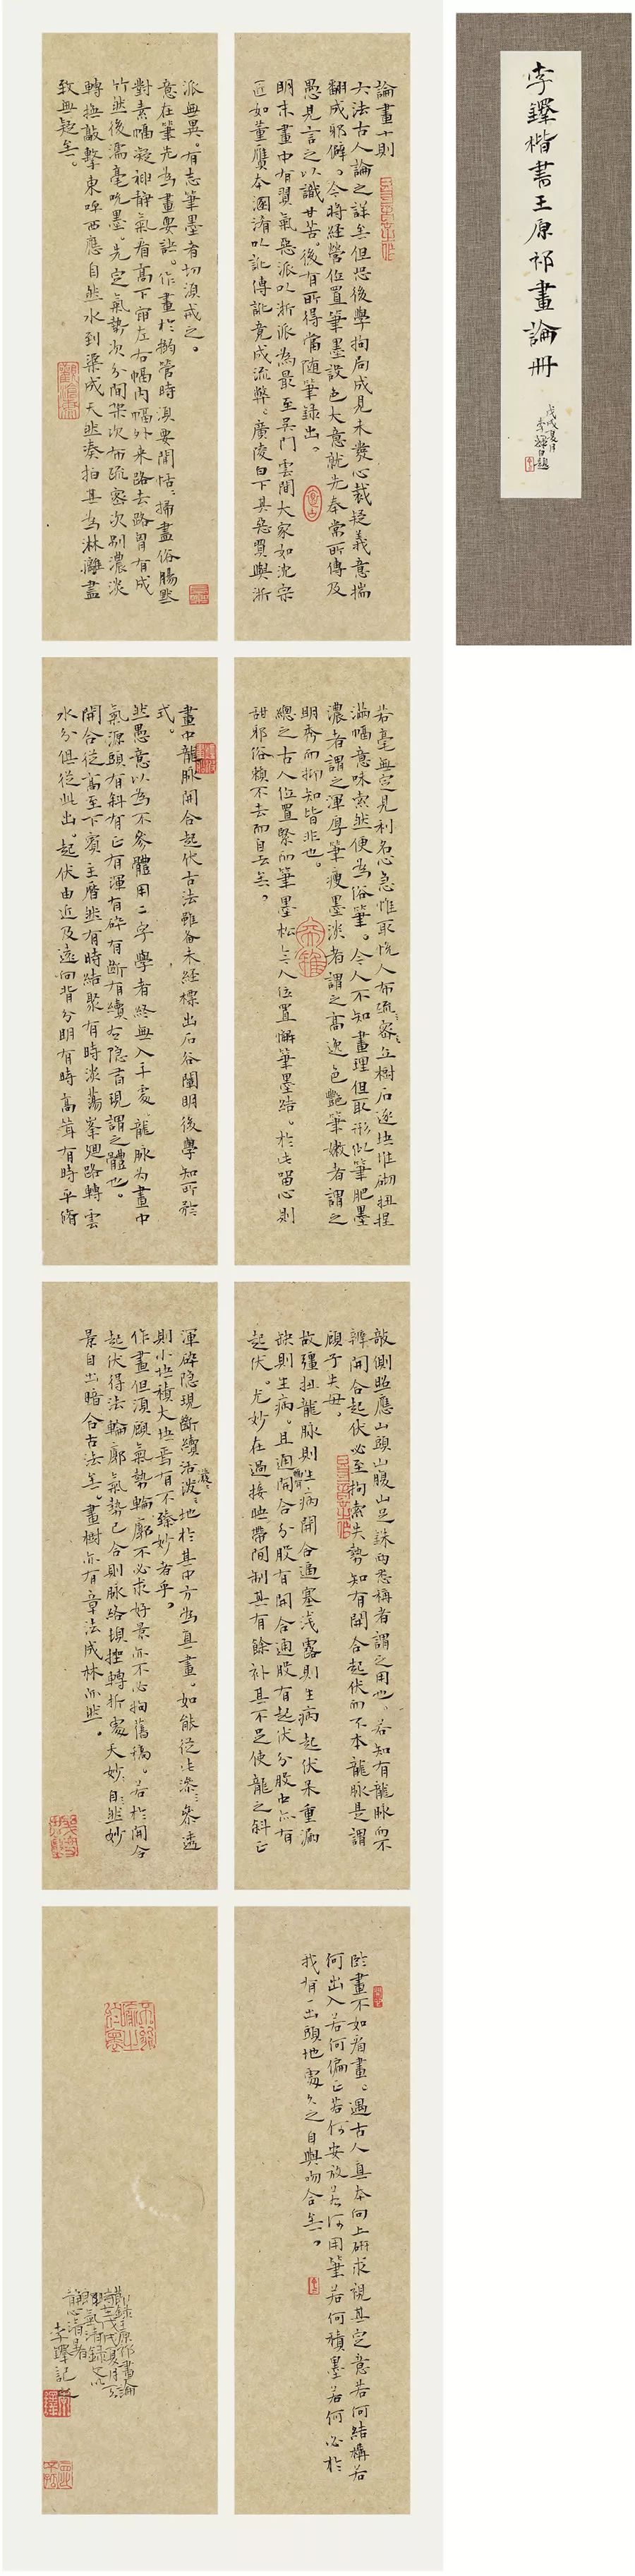 李鐸楷書王原祁畫論冊
戊戌夏月
李鐸自題
論畫十則
六法古人論之詳矣但恐後學拘局成見未發心裁疑義意揣
翻成邪僻。今將經營位置筆墨設色大意就先奉常所傳及
愚見言之以識甘苦。後有所得當隨筆錄出。
明末畫中有習氣惡派以浙派為最至吳門雲間大家如沈宗
匠如董贋本溷淆以訛傳訛竟成流弊。廣陵白下其惡習與浙
派無異。有志筆墨者切須戒之。
意在筆先為畫要訣。作畫於搦管時須要閒恬。掃盡俗腸默
對素幅凝神靜氣看高下審左右幅內幅外來路去路胸有成
竹然後濡毫吮墨。先定氣勢次分間架次布疏密次別濃淡
轉換敲擊東呼西應自然水到渠成天然湊拍其為淋漓盡
致無疑矣。
若毫無定見利名念急惟取悅人布疏密立樹石逐块堆砌扭捏
滿幅意味索然便為俗筆。今人不知畫理但取形似筆肥墨
濃者謂之渾厚筆瘦墨淡者謂之高逸色艷筆嫩者謂之
明秀而抑知皆非也。
總之古人位置緊而筆墨松今人位置懈筆墨結。於此留心則
甜邪俗賴不去而自去矣。
畫中龍脉開合起伏古法雖备未經標出石谷闡明後學知所矜
式。
然愚意以為不參體用二字學者終無入手處。龍脉為畫中
氣源頭有斜有正有渾有碎有斷有續有隐有現謂之體也。
開合從高至下賓主曆然有時結聚有時淡蕩峯廻路轉雲
水分俱從此出。起伏由近及遠向背分明有時高聳有時平脩
敧側照應山頭山腹山足銖兩悉稱者謂之用也。若知有龍脉而不
辨開合起伏必至拘索失勢知有開合起伏而不本龍脉是謂
顧子失母。
故彊扭龍脉則生病開合逼塞浅露則生病起伏呆重漏
缺則生病。且通開合分股有開合通股有起伏分股中亦有
起伏。尤妙在過接映帶間制其有餘补其不足使龍之斜正
渾碎隐現斷續活潑潑地於其中方為真畫。如能從此滲滲參透
則小块積大块焉有不臻妙者乎。
作畫但須顧氣勢輪廓不必求好景亦不必拘舊稿。若於開合
起伏得法輪廓氣勢已合則脉絡頓挫轉折處天妙自然妙
景自出暗合古法矣。畫樹亦有章法成林亦然。
臨畫不如看畫。遇古人真本向上研求視其定意若何結構若
何出入若何偏正若何安放若何用筆若何積墨若何必於
我有一出頭地處久之自與吻合矣。
李鐸記